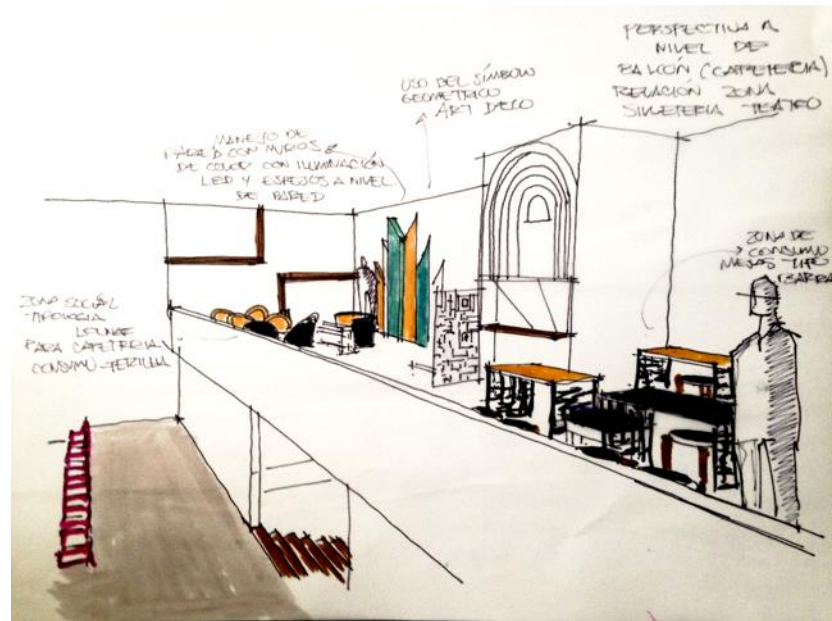 PERSPECTIVA A
NIVEL DE
BALCÓN (CAFETERIA)
RELACIÓN ZONA
SILLETERIA TEATRO
USO DEL SÍMBOLO
GEOMETRICO
ART DECO
MANEJO DE
PARED CON MUROS
DE COLOR CON ILUMINACIÓN
LED Y ESPEJOS A NIVEL
DE PARED
ZONA DE
CONSUMO
MESAS TIPO
BARRA
ZONA SOCIAL
TIPOLOGIA
LOUNGE
PARA CAFETERIA
CONSUMO-TERTULIA